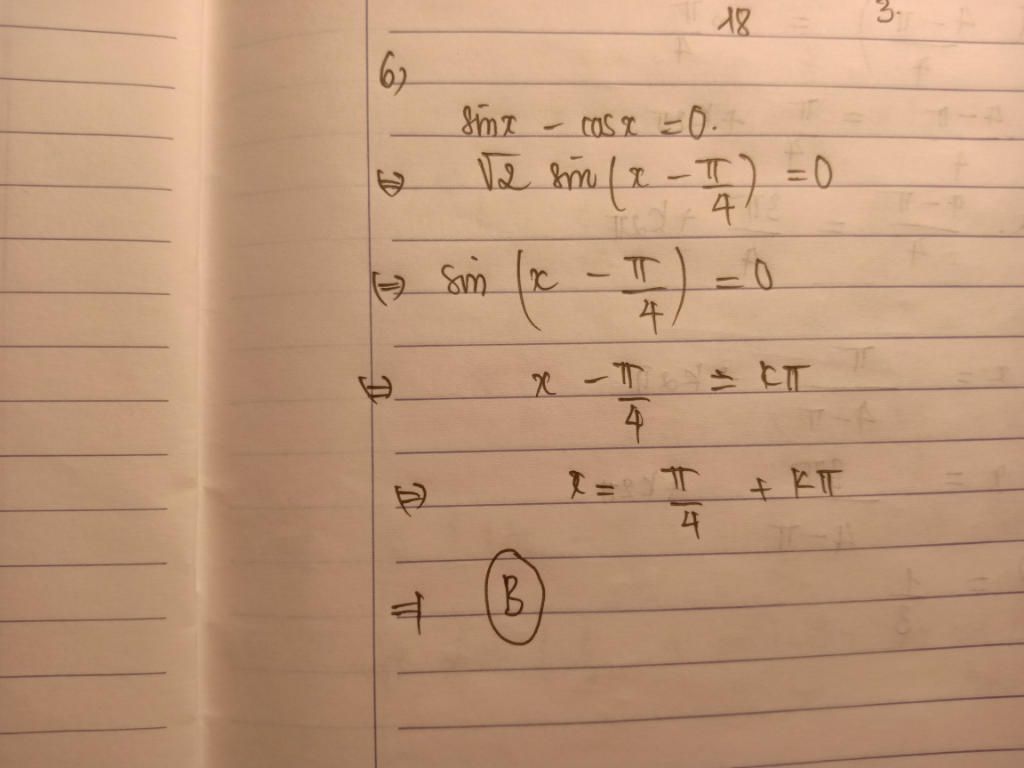 18 3.
6)
sinx - cosx = 0.
⇔ √2 sin(x - π/4) = 0
⇔ sin (x - π/4) = 0
⇔ x - π/4 = kπ
⇔ x = π/4 + kπ
⇒ B